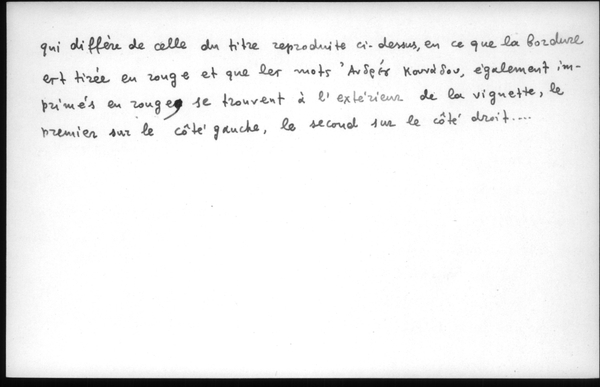 qui diffère de celle du titre reproduite ci-dessus, en ce que la bordure
est tirée en rouge et que les mots 'Ανδρέƴ Κουνάδου, également im-
primés en rouge, se trouvent à l'extérieur de la vignette, le
premier sur le côté gauche, le second sur le côté droit....